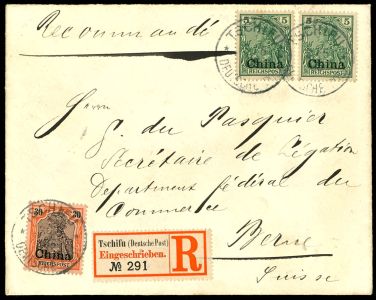 Recommandé
5 5 5 5
China China
REICHSPOST REICHSPOST
TSCHIFU
DEUTSCHE
Herrn
G. du Pasquier
Secrétaire de Légation
Department fédéral du
Commerce
Berne
Suisse
30 30
China
REICHSPOST
Tschifu (Deutsche Post)
Eingeschrieben.
№ 291
R